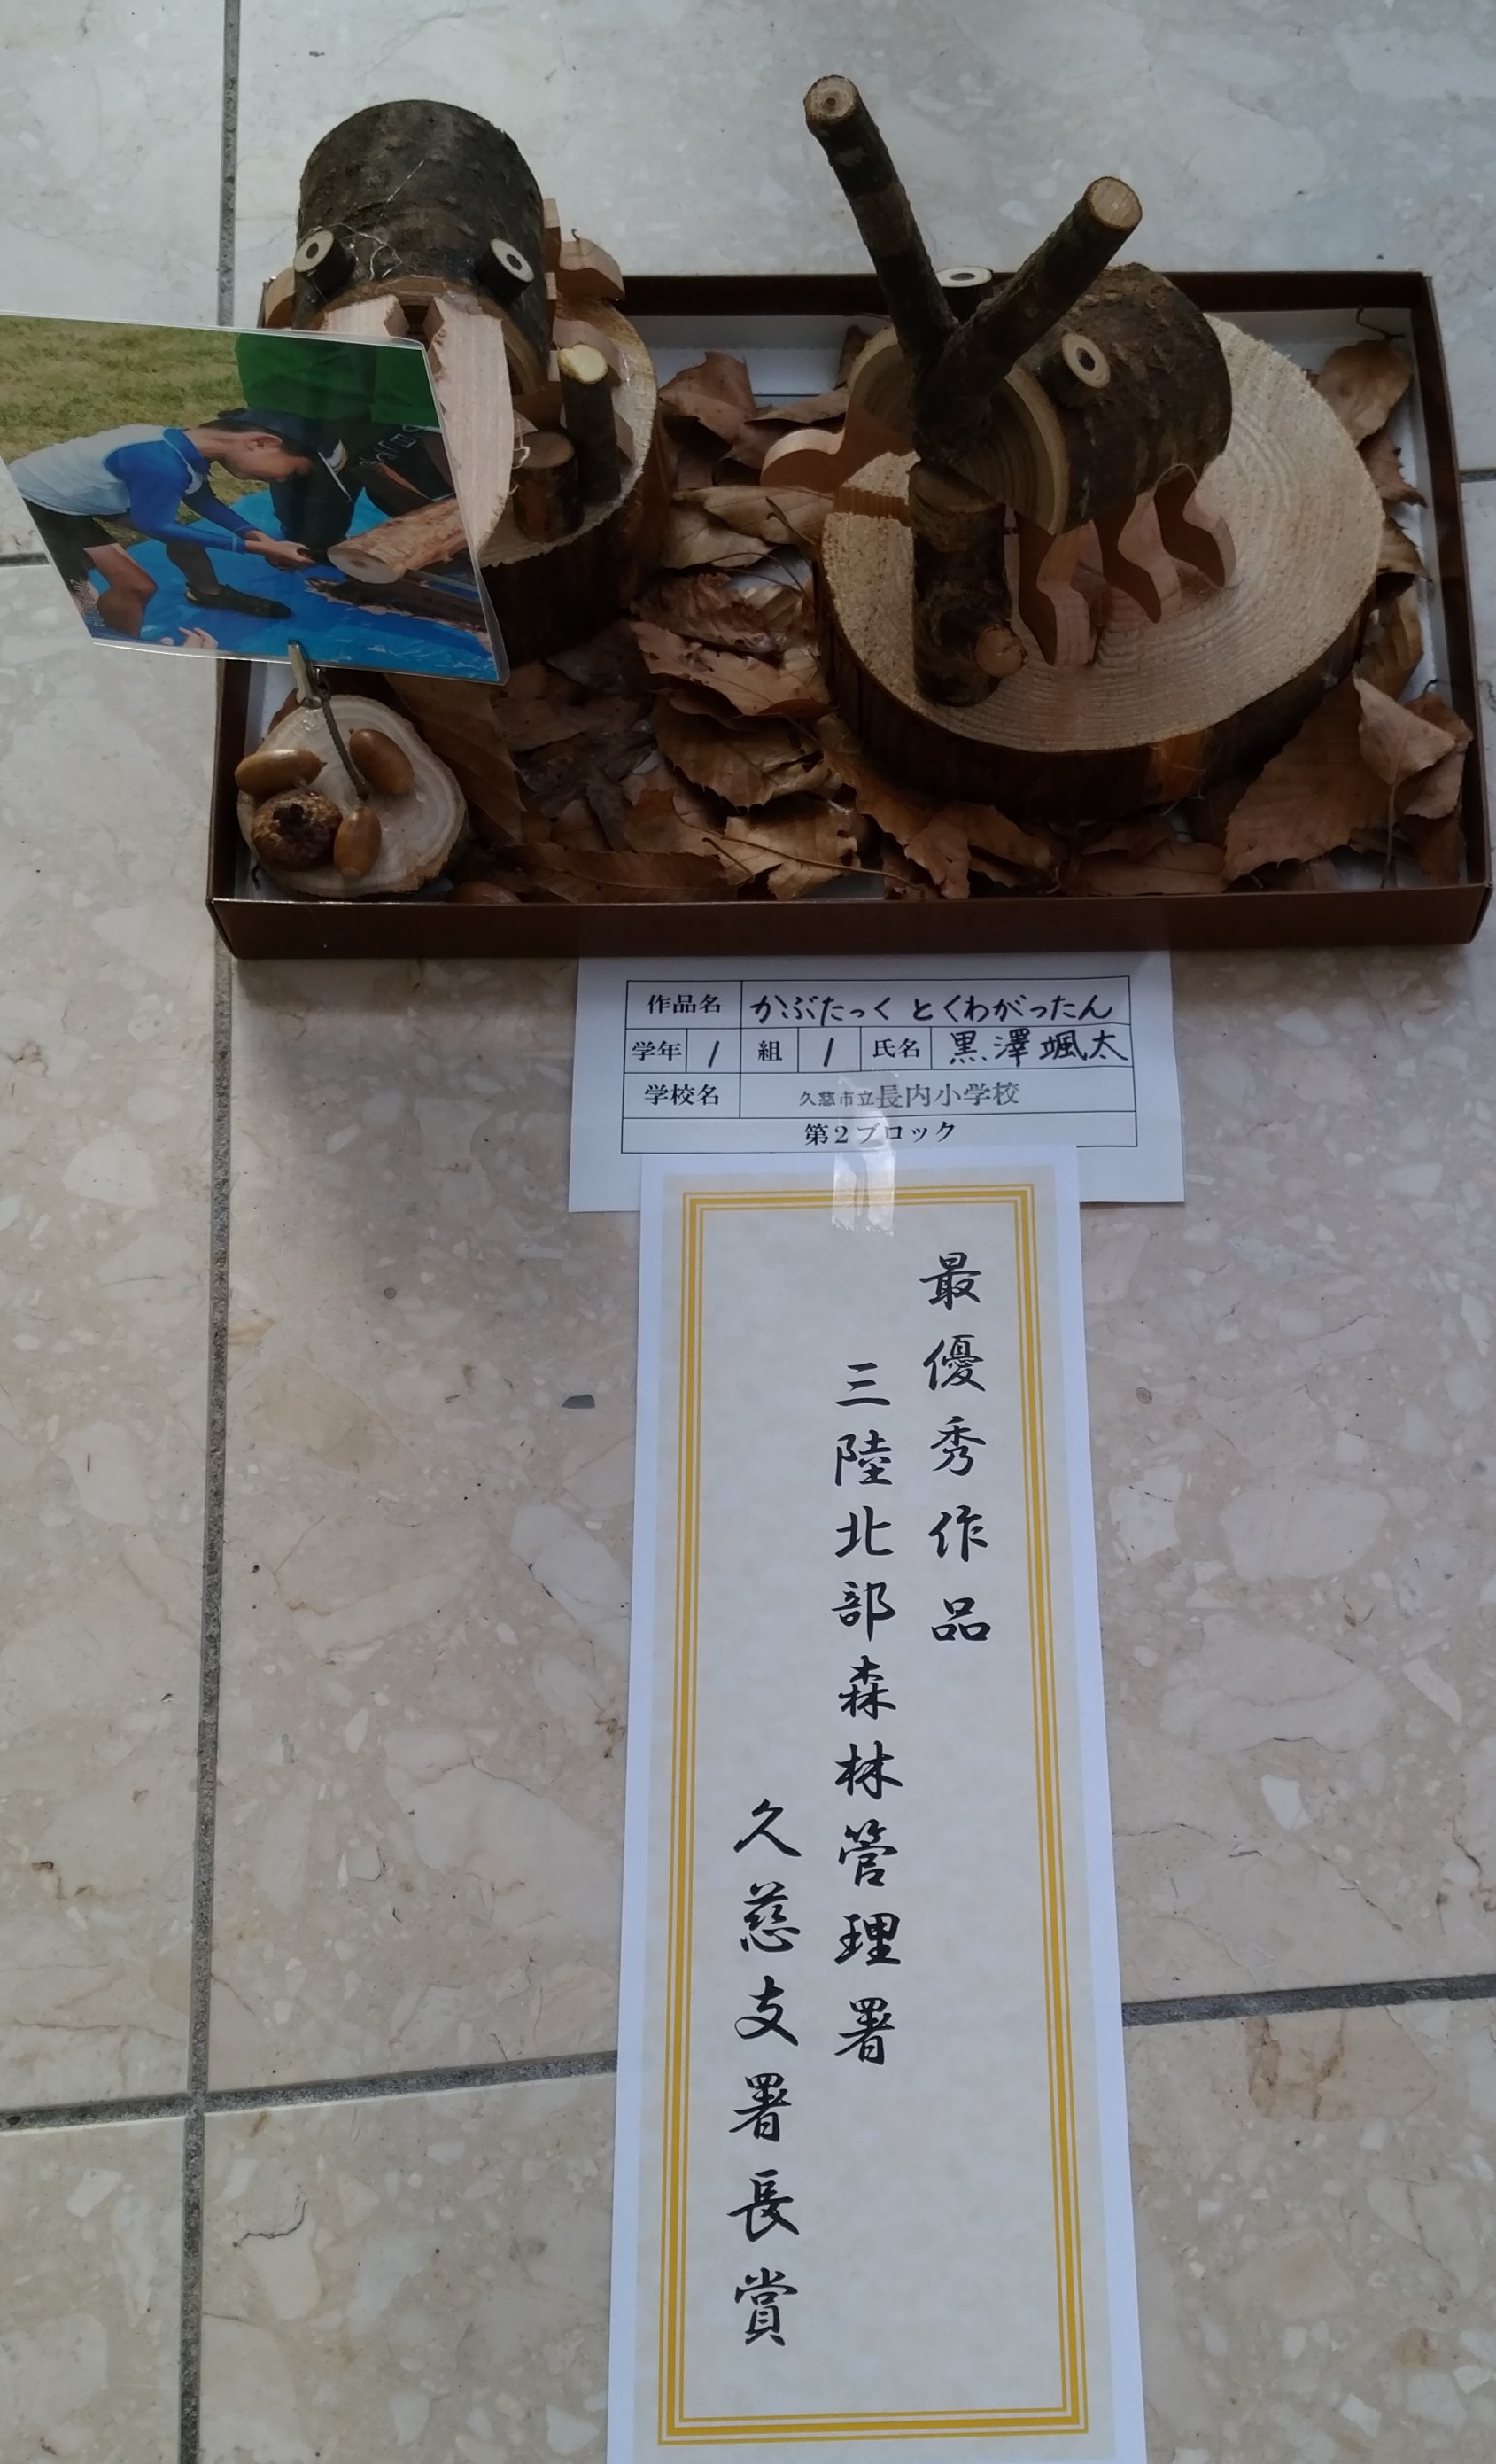 作品名 かぶたっく とくわがったん
学年 1 組 1 氏名 黒澤颯太
学校名 久慈市立長内小学校
第2ブロック
最優秀作品
三陸北部森林管理署
久慈支署長賞